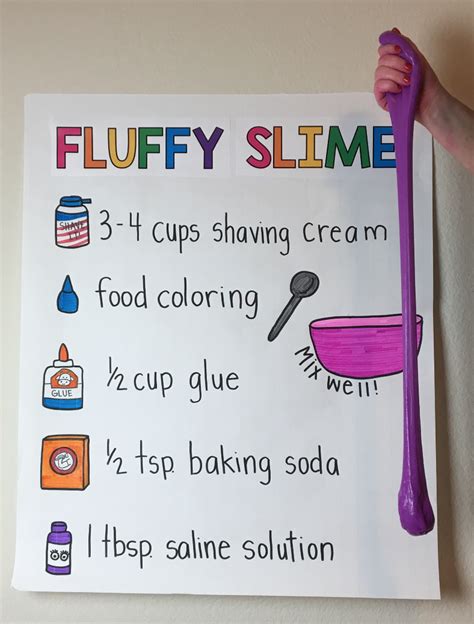 FLUFFY SLIME
3-4 cups shaving cream
food coloring
Mix well!
GLUE
1/2 cup glue
1/2 tsp. baking soda
1 tbsp. saline solution